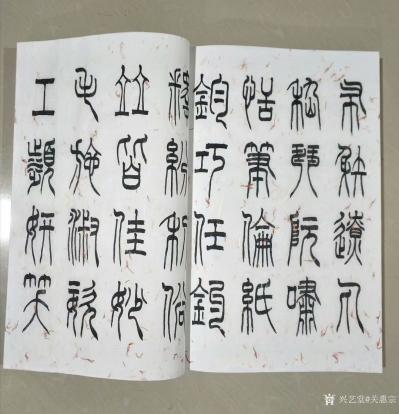 布射遼丸
嵇琴阮嘯
恬筆倫紙
鈞巧任釣
釋紛利俗
並皆佳妙
毛施淑姿
工顰妍笑
兴艺堂#关惠宗